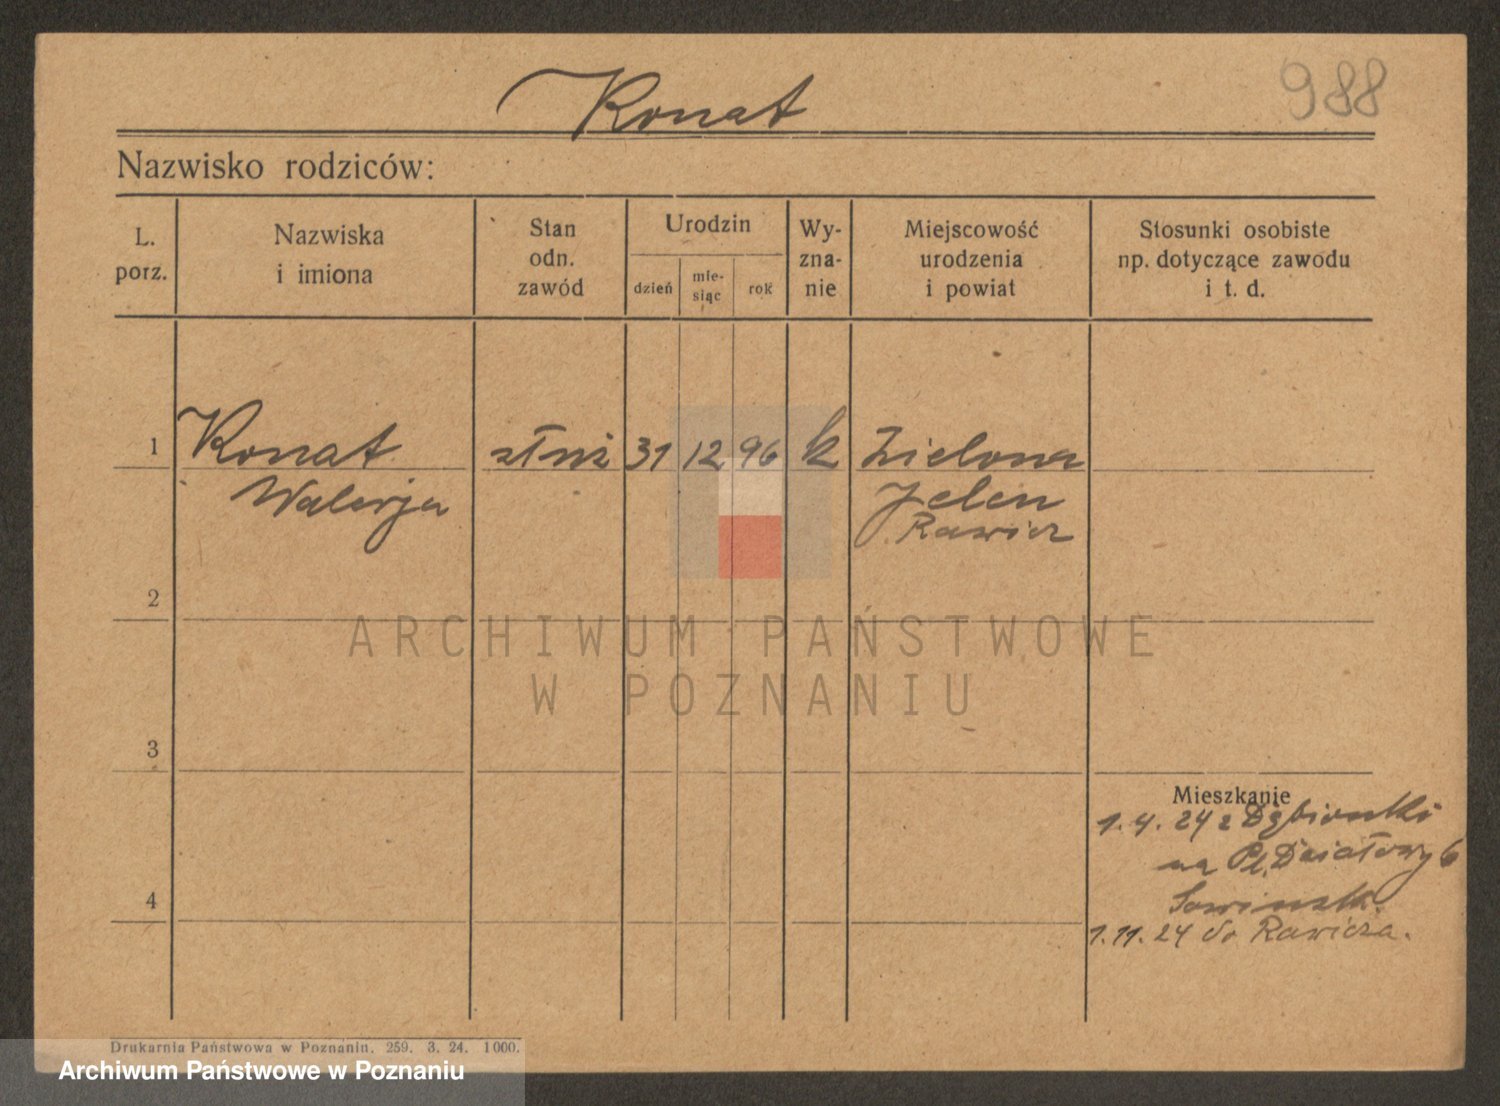 988
Konat
Nazwisko rodziców:
L. porz.
Nazwiska i imiona
Stan odn. zawód
Urodzin
dzień
mie-siąc
rok
Wy-zna-nie
Miejscowość urodzenia i powiat
Stosunki osobiste np. dotyczące zawodu i t. d.
1 Konat służ 31 12 96 k Zielona
Walerja Jelen
Rawicz
2
ARCHIWUM PAŃSTWOWE
W POZNANIU
3
Mieszkanie
1.4.24 z Dąbionki
na Pl. Działowy 6
4
1.11.24 do Rawicza.
Drukarnia Państwowa w Poznaniu. 259. 3. 24. 1000.
Archiwum Państwowe w Poznaniu